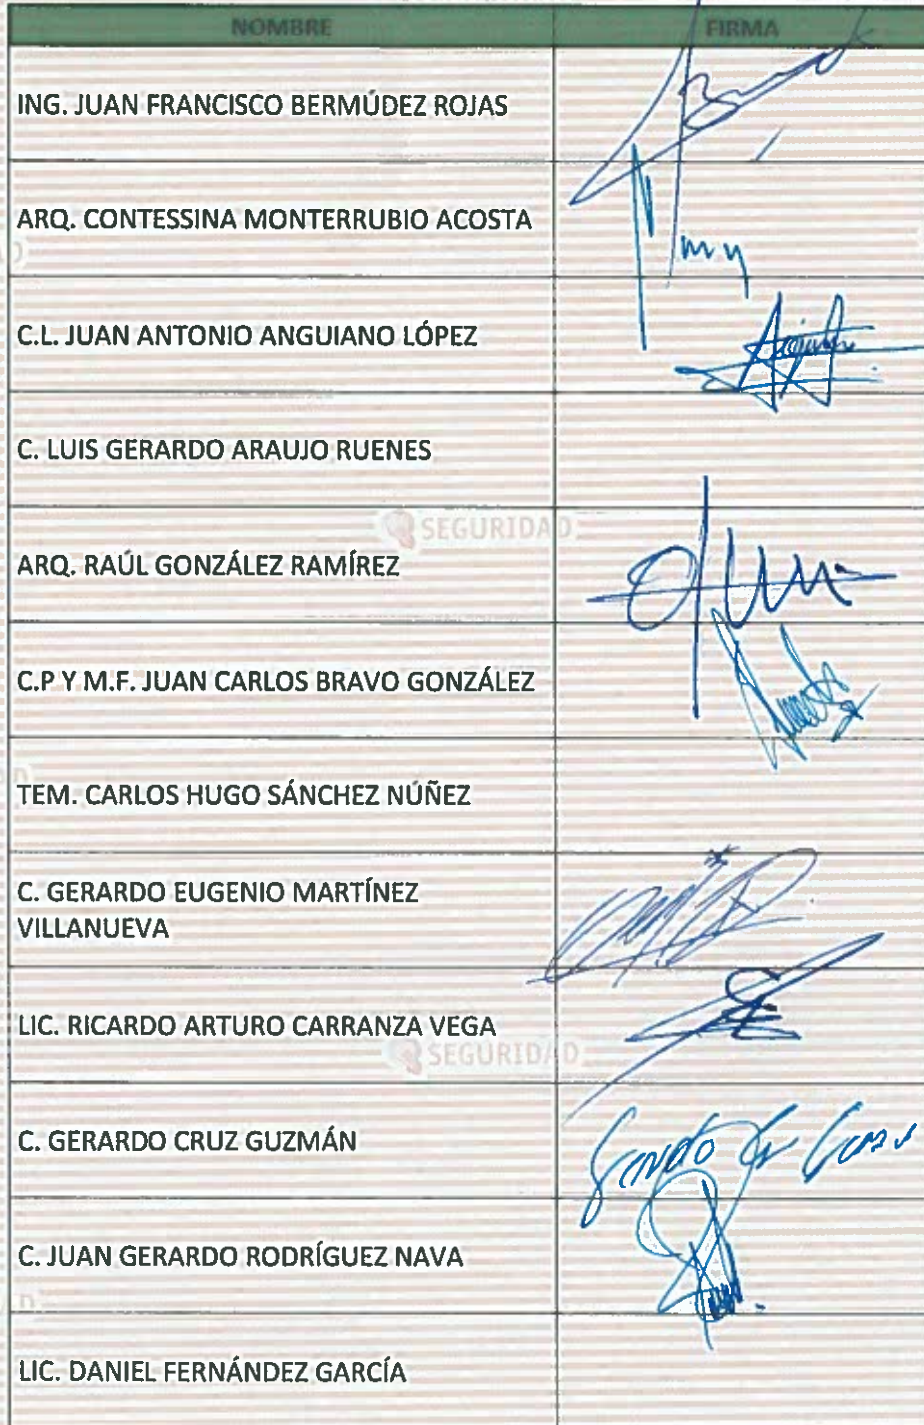 NOMBRE FIRMA
ING. JUAN FRANCISCO BERMÚDEZ ROJAS
ARQ. CONTESSINA MONTERRUBIO ACOSTA
C.L. JUAN ANTONIO ANGUIANO LÓPEZ
C. LUIS GERARDO ARAUJO RUENES
SEGURIDAD
ARQ. RAÚL GONZÁLEZ RAMÍREZ
C.P Y M.F. JUAN CARLOS BRAVO GONZÁLEZ
TEM. CARLOS HUGO SÁNCHEZ NÚÑEZ
C. GERARDO EUGENIO MARTÍNEZ
VILLANUEVA
LIC. RICARDO ARTURO CARRANZA VEGA
SEGURIDAD
C. GERARDO CRUZ GUZMÁN
C. JUAN GERARDO RODRÍGUEZ NAVA
LIC. DANIEL FERNÁNDEZ GARCÍA